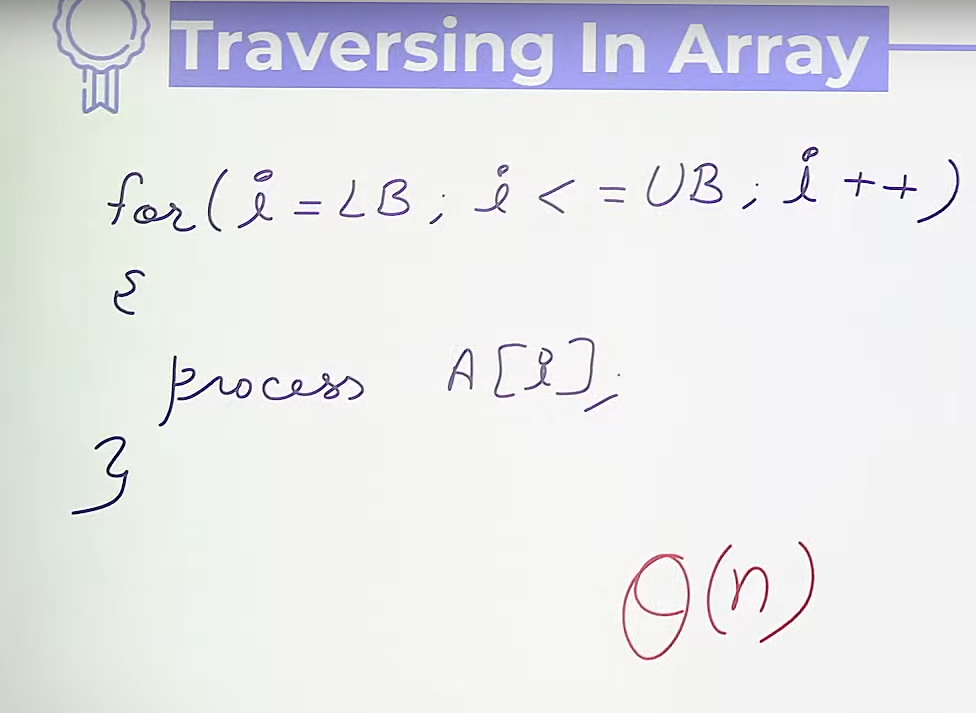 Traversing In Array
for(i=LB; i<=UB; i++)
{
process A[i];
}
θ(n)